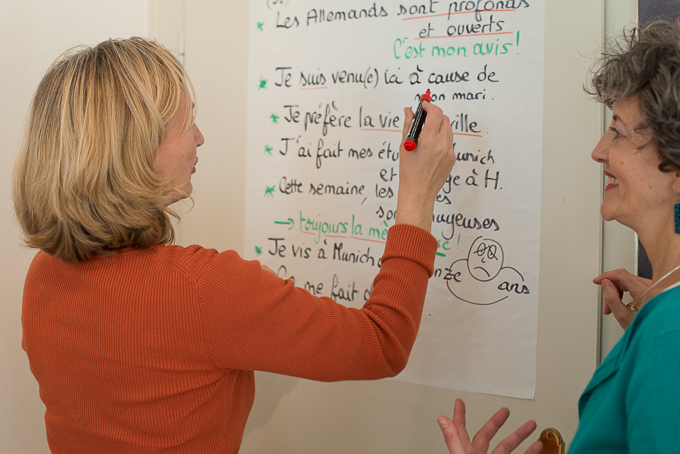 Les Allemands sont profonds
et ouverts
C'est mon avis!
Je suis venu(e) ici à cause de
mon mari.
Je préfère la vie ville
J'ai fait mes Munich
et à H.
Cette semaine, les
→ toujours la !
Je vis à Munich
ans
fait